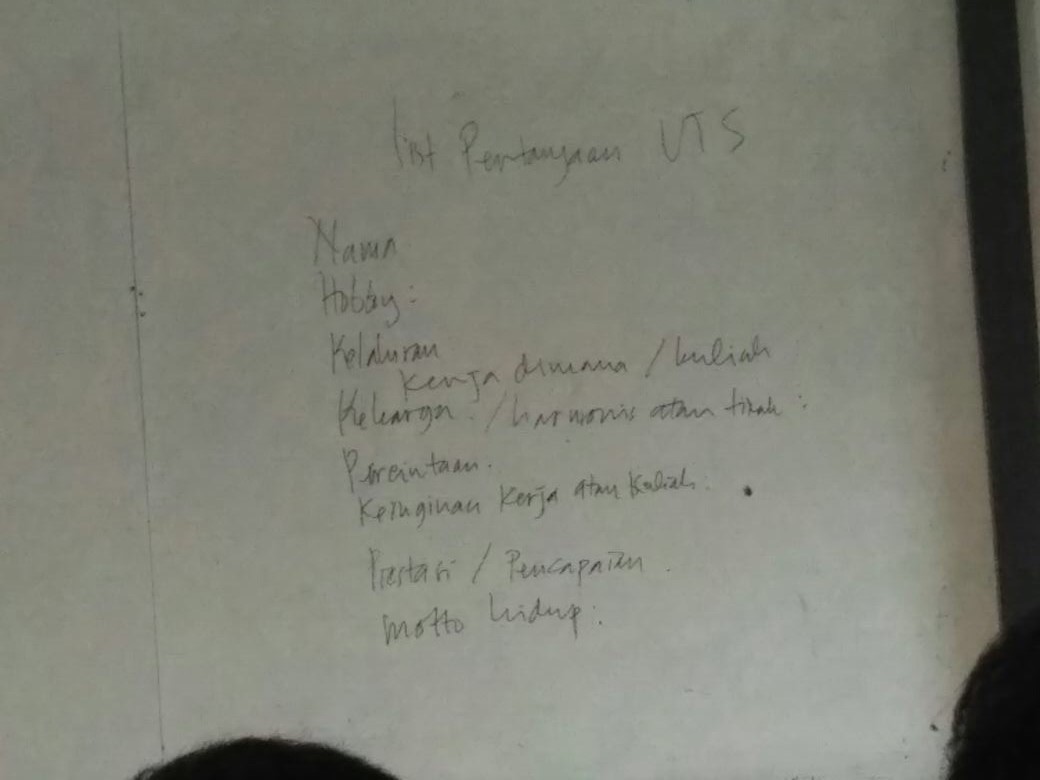 list Pertanyaan UTS
Nama
Hobby :
Kelahiran
Kerja dimana / kuliah
Keluarga : / harmonis atau tidak :
Percintaan.
Keinginan Kerja atau Kuliah :
Prestasi / Pencapaian .
Motto hidup :